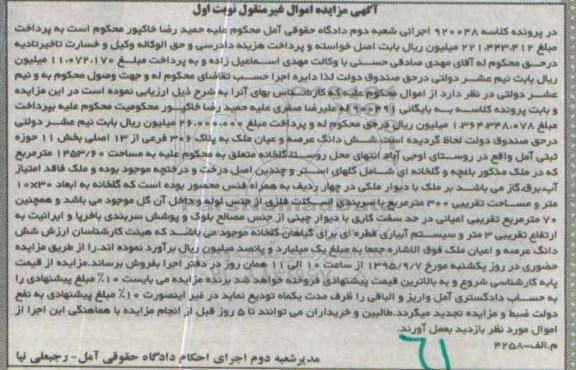 آگهی مزایده اموال غیرمنقول نوبت اول
در پرونده کلاسه ۹۲۰۰۴۸ اجرائی شعبه دوم دادگاه حقوقی آمل محکوم علیه حمید رضا خاکپور محکوم است به پرداخت
مبلغ ۲۲۱,۴۴۳,۴۱۲ میلیون ریال بابت اصل خواسته و پرداخت هزینه دادرسی و حق الوکاله وکیل و خسارت تاخیرتادیه
درحق محکوم له آقای مهدی صادقی حسنی با وکالت مهدی اسماعیل زاده و به پرداخت مبلغ ۱۱,۰۷۲,۱۷۰ میلیون
ریال بابت نیم عشر دولتی درحق صندوق دولت لذا دایره اجرا حسب تقاضای محکوم له و جهت وصول محکوم به و نیم
عشر دولتی در نظر دارد از اموال محکوم علیه که کارشناس بهای آنرا به شرح ذیل ارزیابی نموده است در این مزایده
و بابت پرونده کلاسه به بایگانی له علیرضا صفری علیه حمید رضا خاکپور محکومیت محکوم علیه بپرداخت
۱,۳۶۴,۳۴۸,۰۷۸ میلیون ریال درحق محکوم له و پرداخت مبلغ ۴۶,۰۰۰,۰۰۰ میلیون ریال بابت نیم عشر دولتی
درحق صندوق دولت لحاظ گردیده است.شش دانگ عرصه و عیان ملک به پلاک ۳۰۶ فرعی از ۱۳ اصلی بخش ۱۱ حوزه
ثبتی آمل واقع در روستای اوجی آباد انتهای محل روستا،گلخانه متعلق به محکوم علیه به مساحت ۱۴۵۳/۶۰ مترمربع
که در ملک مذکور باغچه و گلخانه ای شامل گلهای استر و چندین اصل درخت و درختچه موجود بوده و ملک فاقد امتیاز
آب،برق،گاز می باشد بر ملک با دیوار ملکی در چهار ردیف به همراه فنس محصور بوده است که گلخانه به ابعاد ۱۰×۳۰
متر و مساحت تقریبی ۳۰۰ مترمربع با پی بندی اسکلت فلزی از جنس لوله و داخل آن گل موجود می باشد و همچنین
۷۰ مترمربع تقریبی اعیانی در حد سفت کاری با دیوار چینی از جنس مصالح بلوک و پوشش سربندی باخرپا و ایرانیت به
ارتفاع تقریبی ۳ متر و سیستم آبیاری قطره ای برای گیاهان گلخانه موجود می باشد که هیئت کارشناسان ارزش شش
دانگ عرصه و اعیان ملک فوق الاشاره جمعا به مبلغ یک میلیارد و پانصد میلیون ریال برآورد نموده اند.را از طریق مزایده
حضوری در روز یکشنبه مورخ ۱۳۹۵/۹/۷ از ساعت ۱۰ الی ۱۱ همان روز در دفتر اجرا بفروش برساند.مزایده از قیمت
پایه کارشناسی شروع و به بالاترین قیمت پیشنهادی فروخته خواهد شد برنده مزایده می بایست ۱۰٪ مبلغ پیشنهادی را
به حساب دادگستری آمل واریز و الباقی را ظرف مدت یکماه تودیع نماید در غیر اینصورت ۱۰٪ مبلغ پیشنهادی به نفع
دولت ضبط و مزایده تجدید میگردد.طالبین و خریداران می توانند تا ۵ روز قبل از انجام مزایده با هماهنگی این اجرا از
اموال مورد نظر بازدید بعمل آورند.
م.الف-۴۲۵۸
مدیرشعبه دوم اجرای احکام دادگاه حقوقی آمل- رجبعلی نیا
۶۱